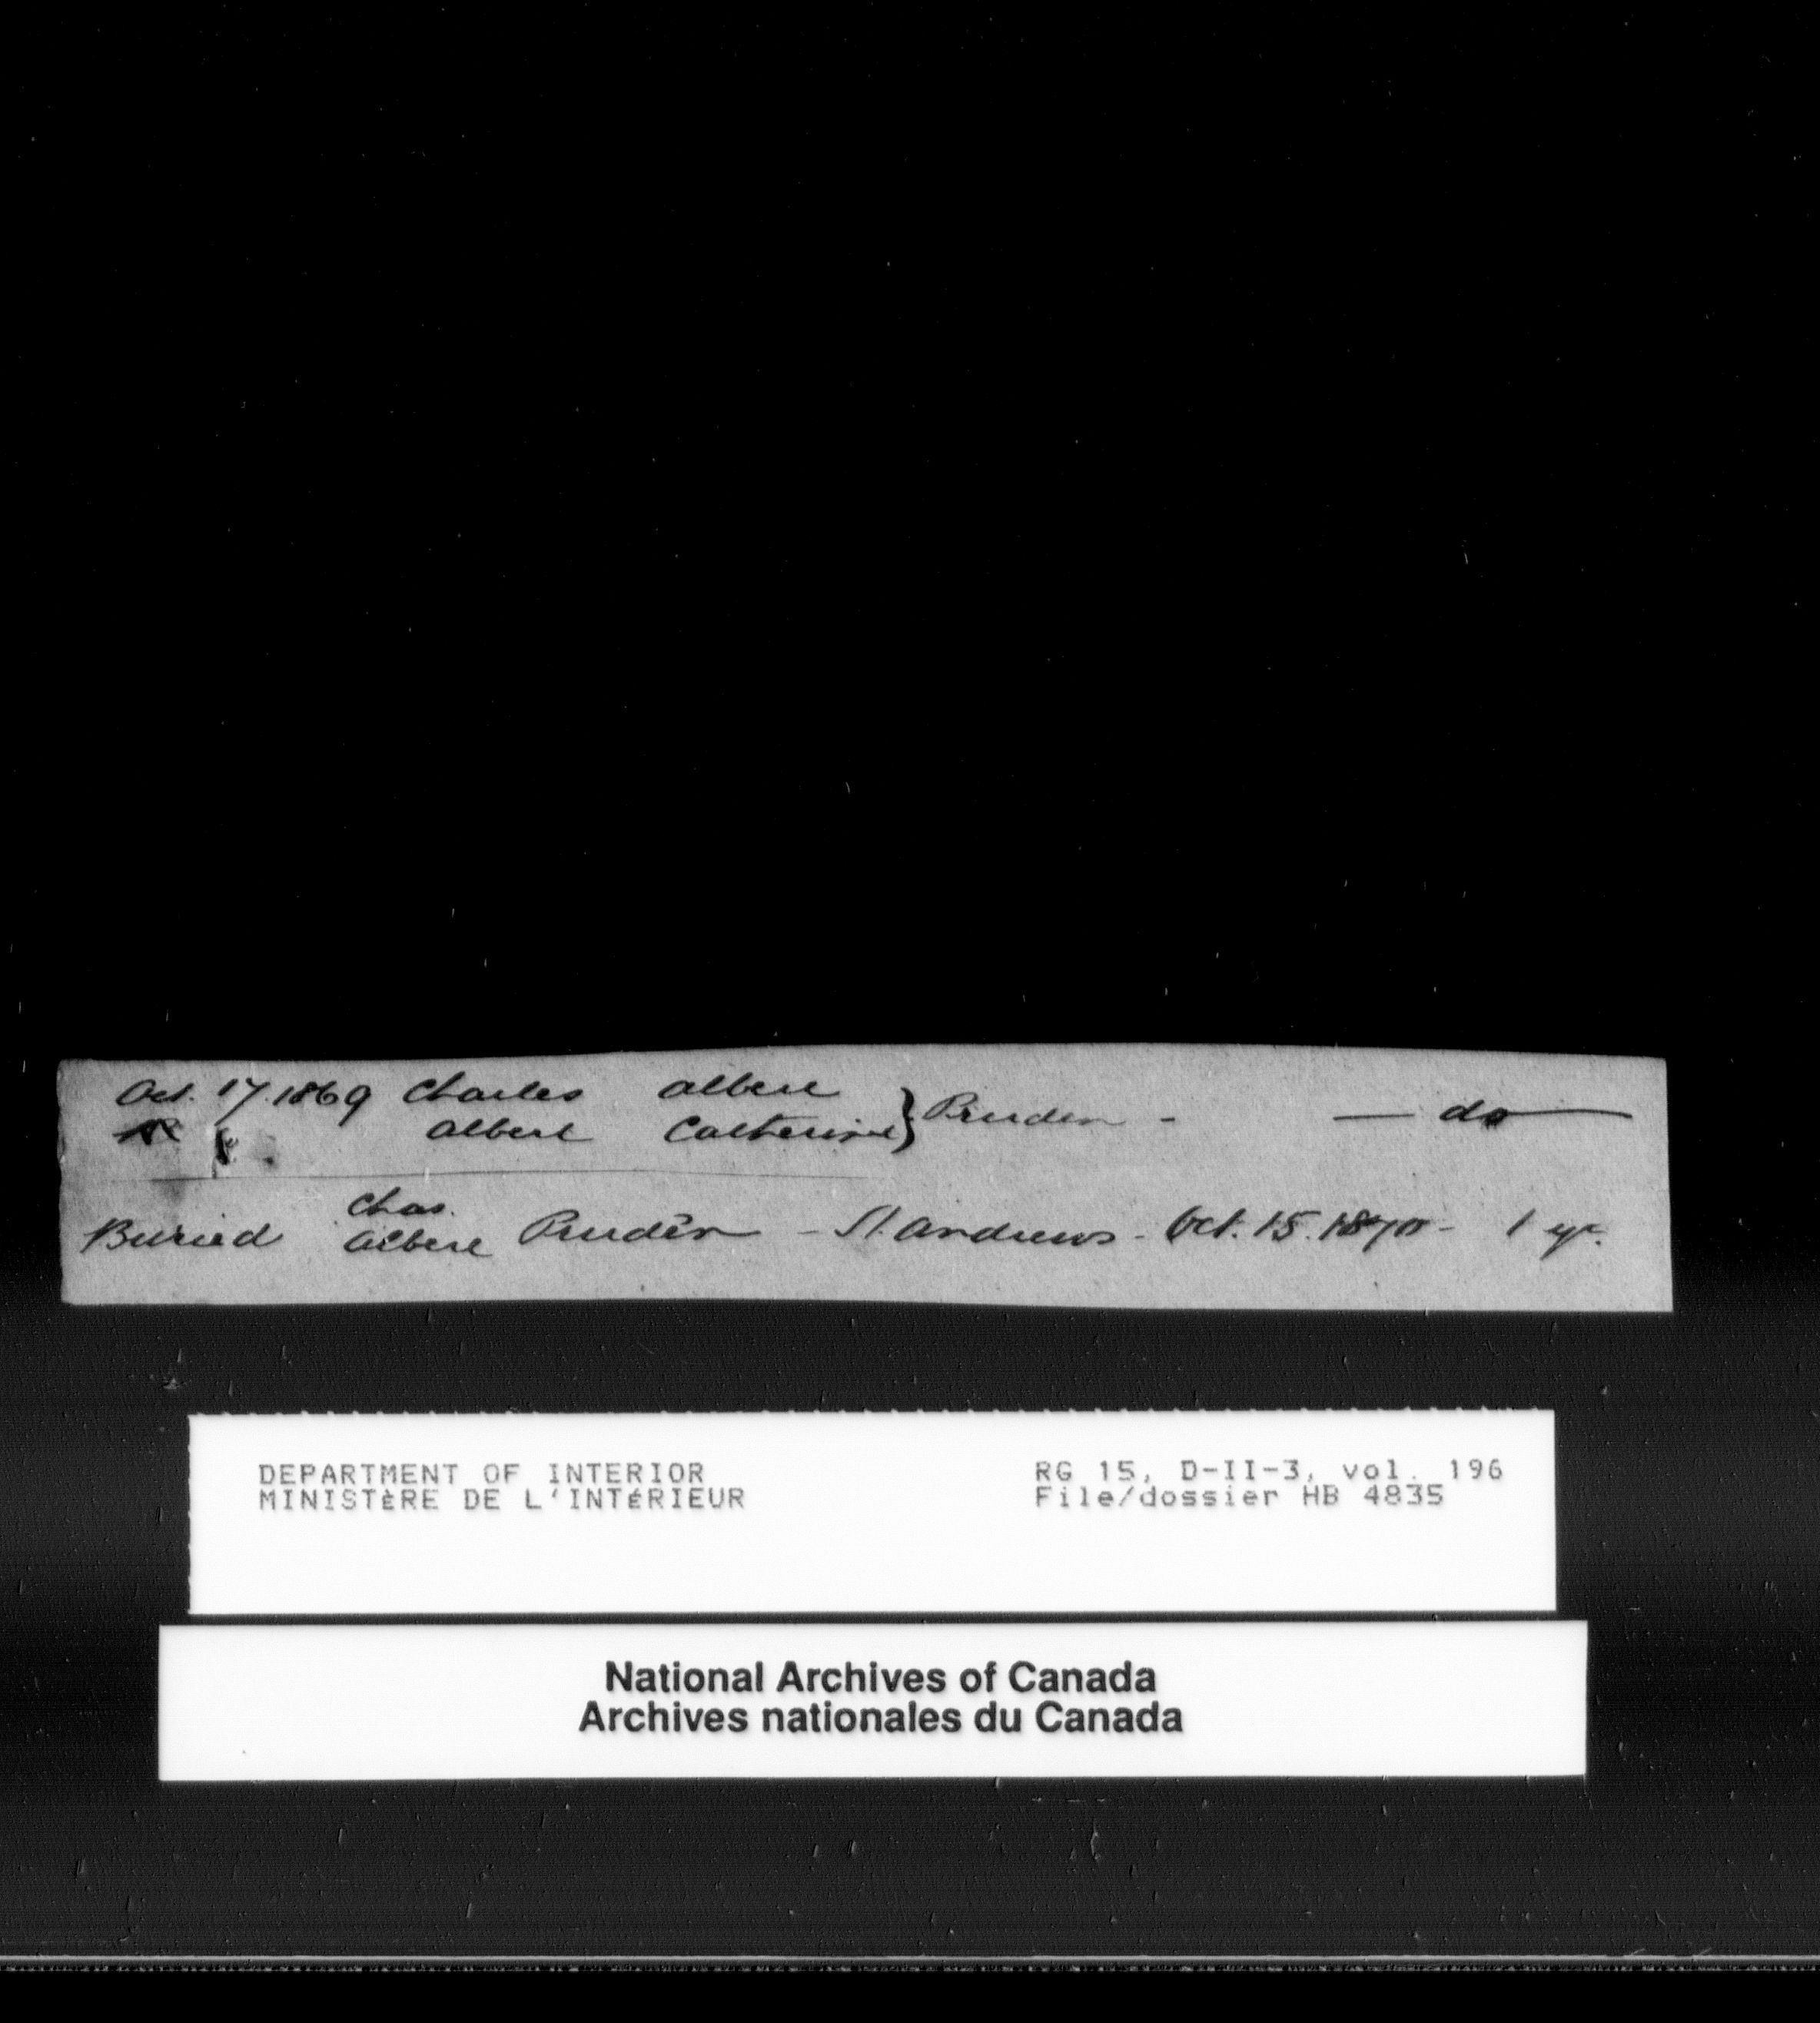 Oct. 17. 1869 Charles Albert } Pruden - — do —
Albert Catherine
Chas.
Buried Albert Pruden - St. Andrews - Oct. 15. 1870 - 1 yr.
DEPARTMENT OF INTERIOR RG 15, D-II-3, vol. 196
MINISTÈRE DE L'INTÉRIEUR File/dossier HB 4835
National Archives of Canada
Archives nationales du Canada